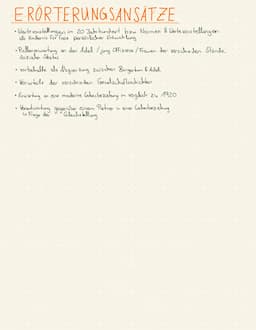 ERÖRTERUNGSANSÄTZE
• Wertevorstellungen im 20 Jahrhundert bzw. Normen & Wertevorstellungen
als Hindernis für freie persönliche Entwicklung
• Rollenerwartung an den Adel / jung Offiziere / Frauen der verschieden Stände,
sozialer Status
• vorbehalte als Abgrenzung zwischen Bürgertum & Adel
• Vorurteile der verschieden Gesellschaftsschichten
• Erwartung an eine moderne Liebesbeziehung im vergleich zu 1920
• Verantwortung gegenüber einem Partner in einer Liebesbeziehung
Frage der Gleichstellung